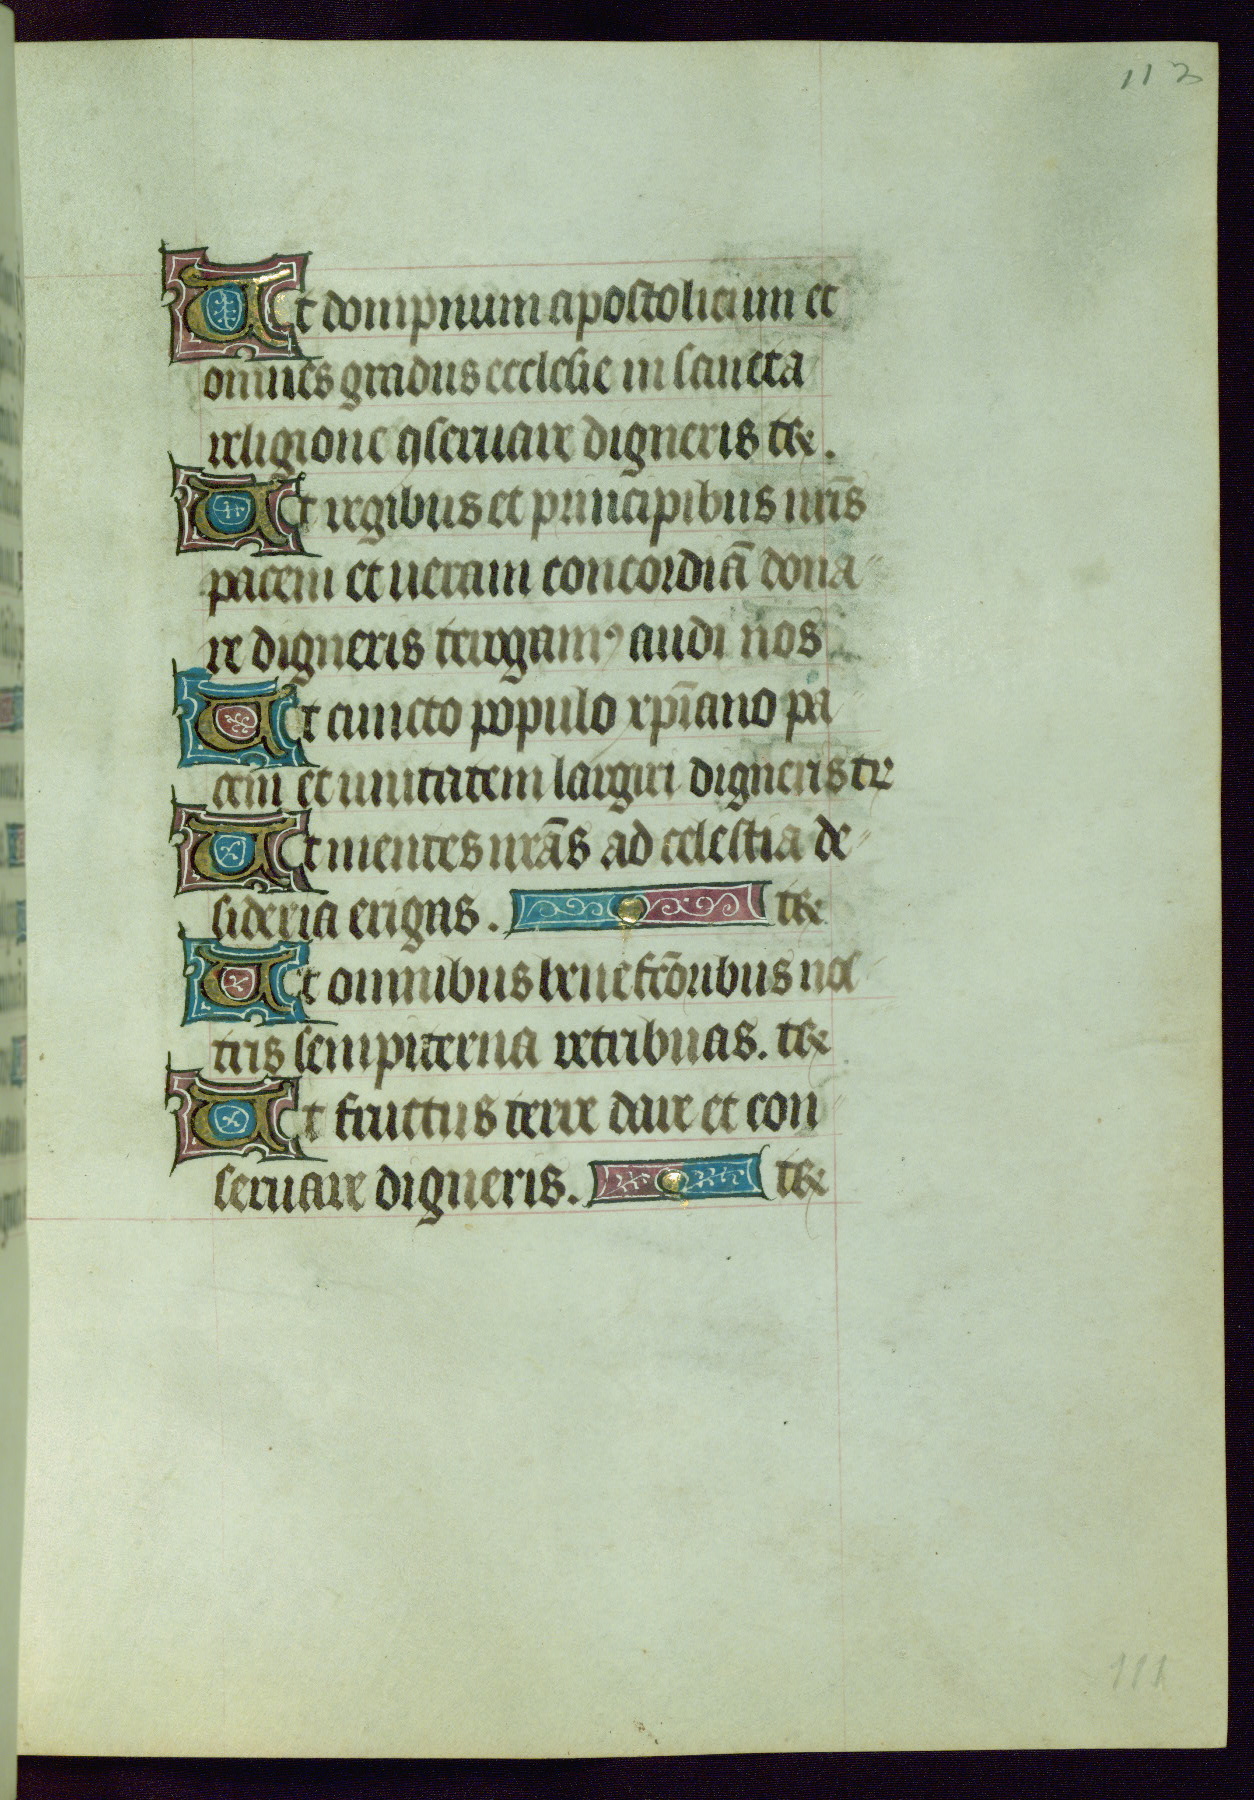 113
Ut dompnum apostolicum et
omnes gradus ecclesie in sancta
religione ꝯseruare digneris te R̃.
Ut regibus et principibus nr̄is
pacem et ueram concordiā dona
re digneris te rogamꝰ audi nos
Ut cuncto populo xp̄iano pa
cem et unitatem largiri digneris te r
Ut mentes nr̄as ad celestia de
sideria erigas. te R̃
Ut omnibus benefc̄oribus nos
tris sempiterna retribuas. te R̃
Ut fructus terre dare et con
seruare digneris. te R̃
111